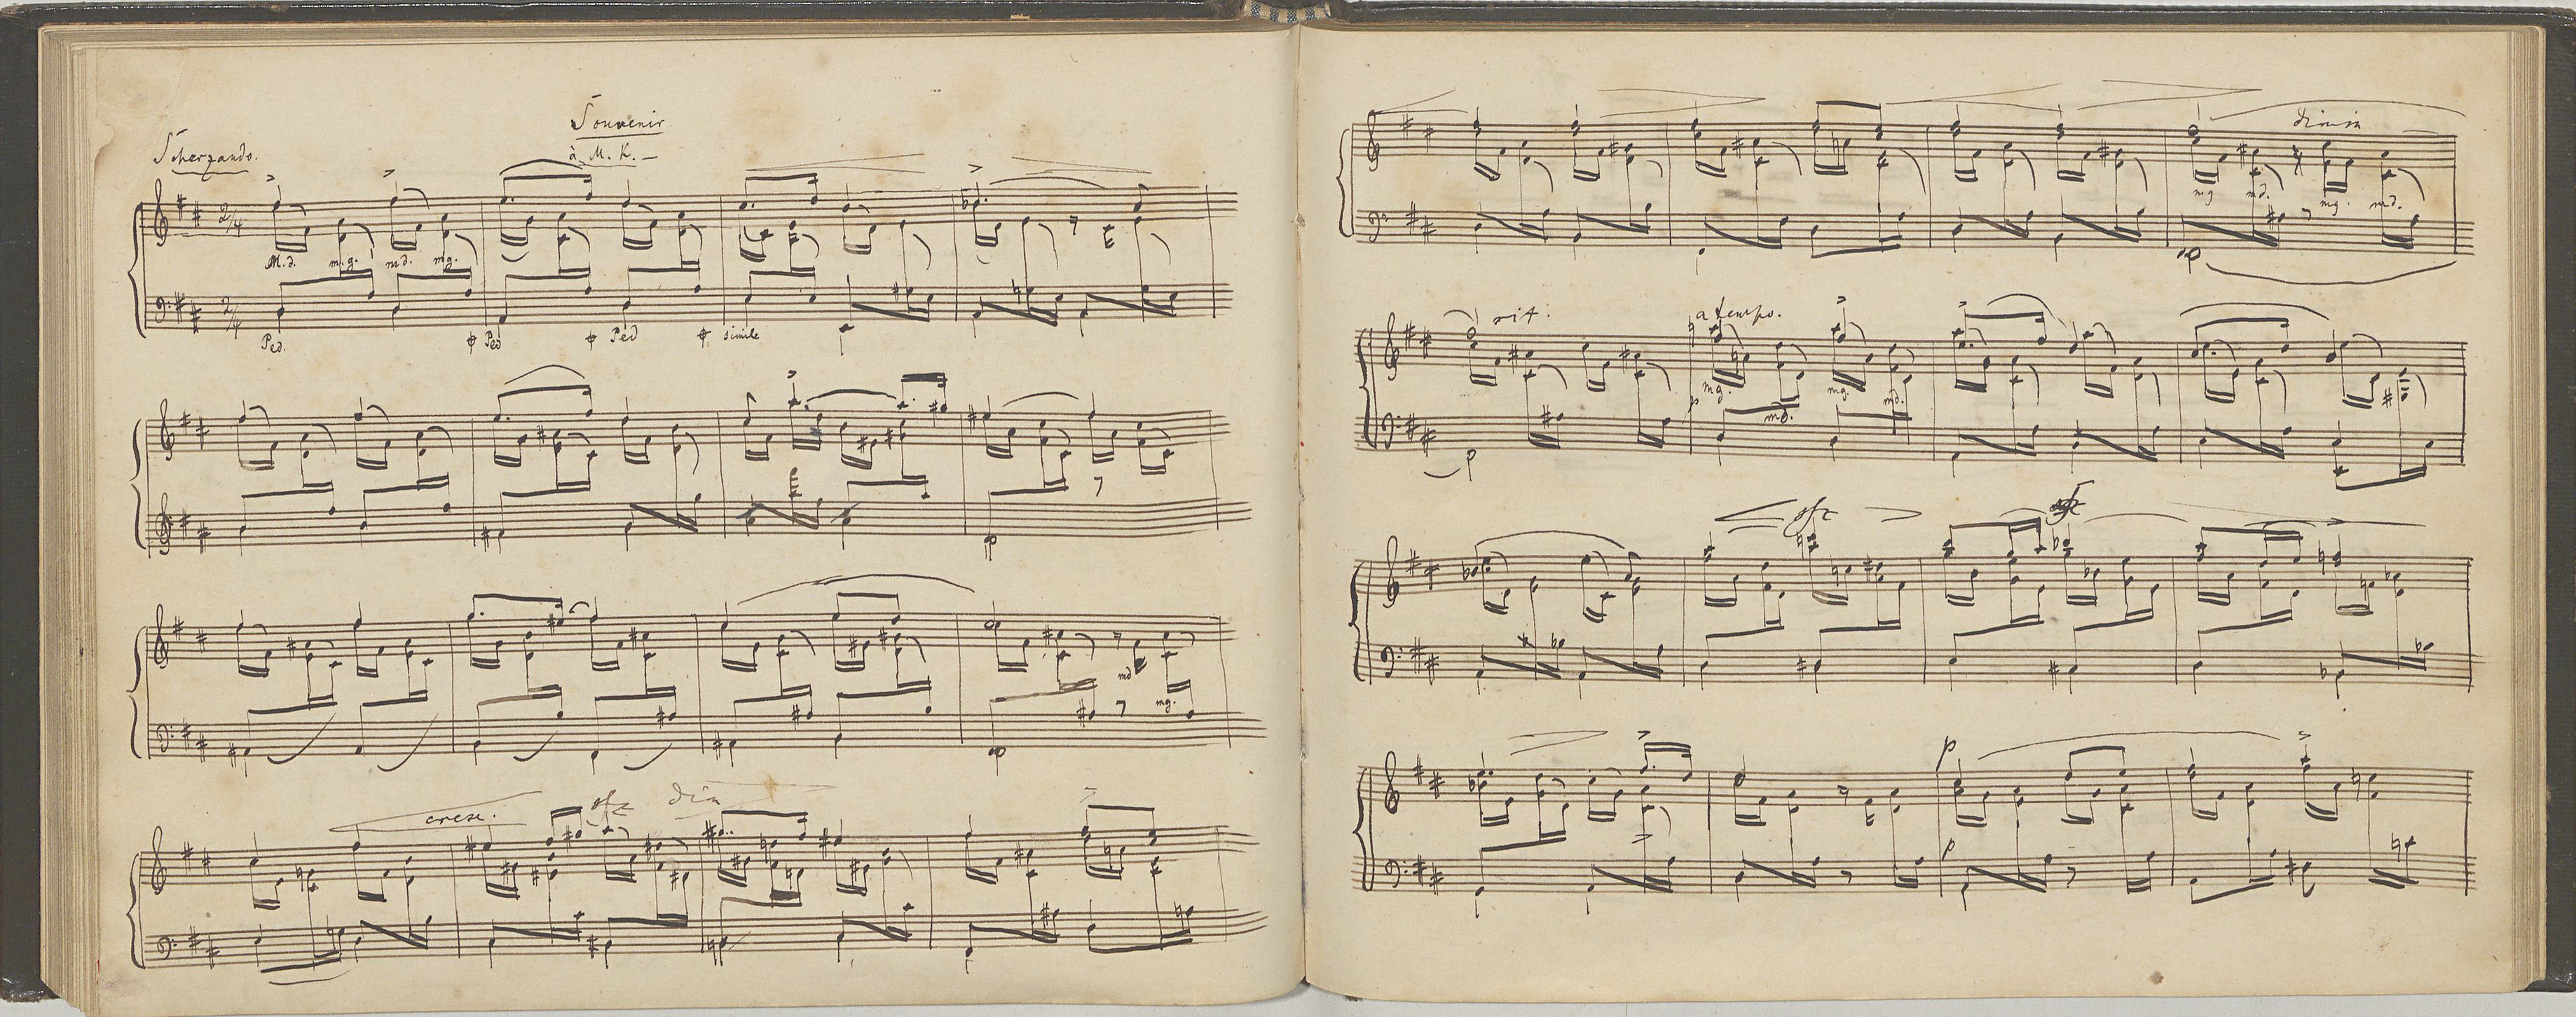 Souvenir
à M. K.
Scherzando.
2/4
M.d. m.g. md. mg.
2/4
Ped. Ped Ped simile
md mg.
cresc. sfz dim
dimin
mg md. mg. md.
rit: a tempo.
p mg. md. mg. md.
sfz sfz
p
p